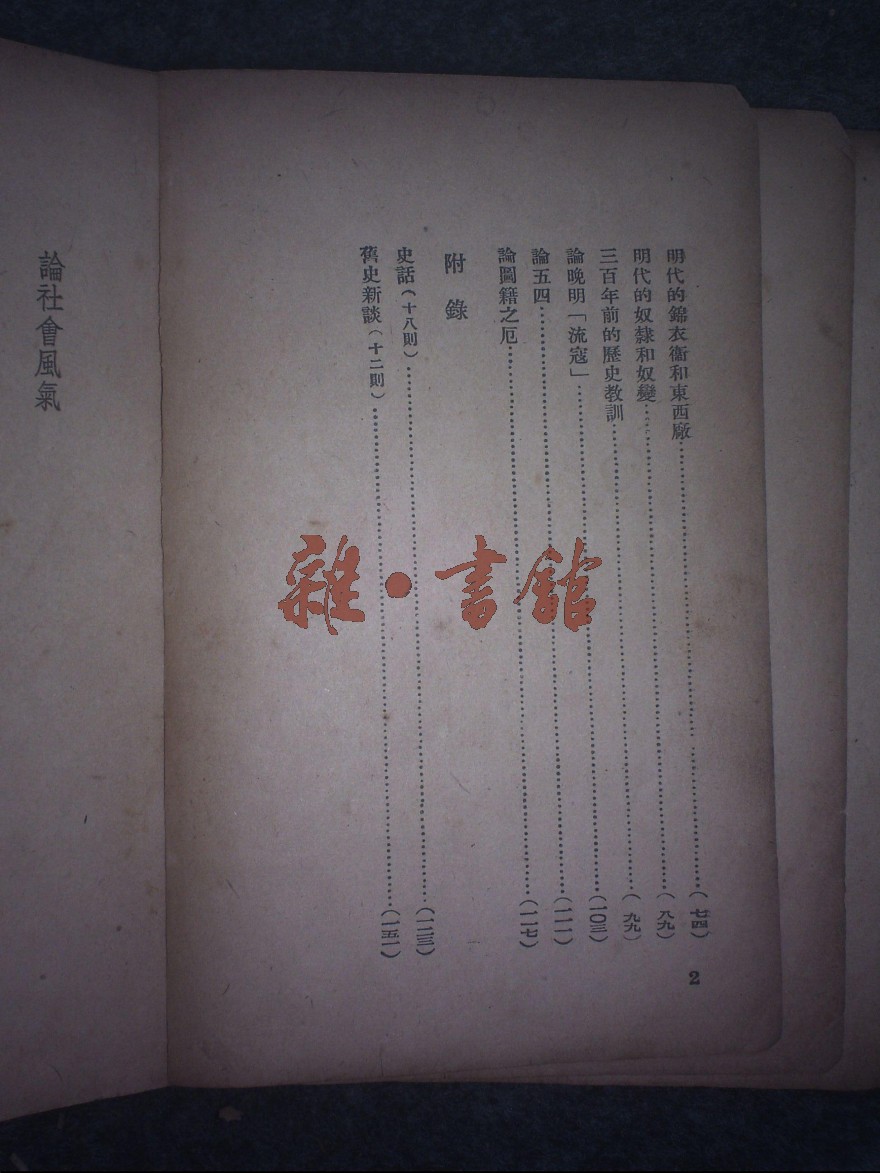 明代的錦衣衛和東西廠…………(七四)
明代的奴隸和奴變…………(八九)
三百年前的歷史教訓…………(九九)
論晚明「流寇」…………(一〇三)
論五四…………(一一一)
論圖籍之厄…………(一一七)
附錄
史話(十八則)…………(一二三)
舊史新談(十二則)…………(一五一)
2
論社會風氣
雜·書館